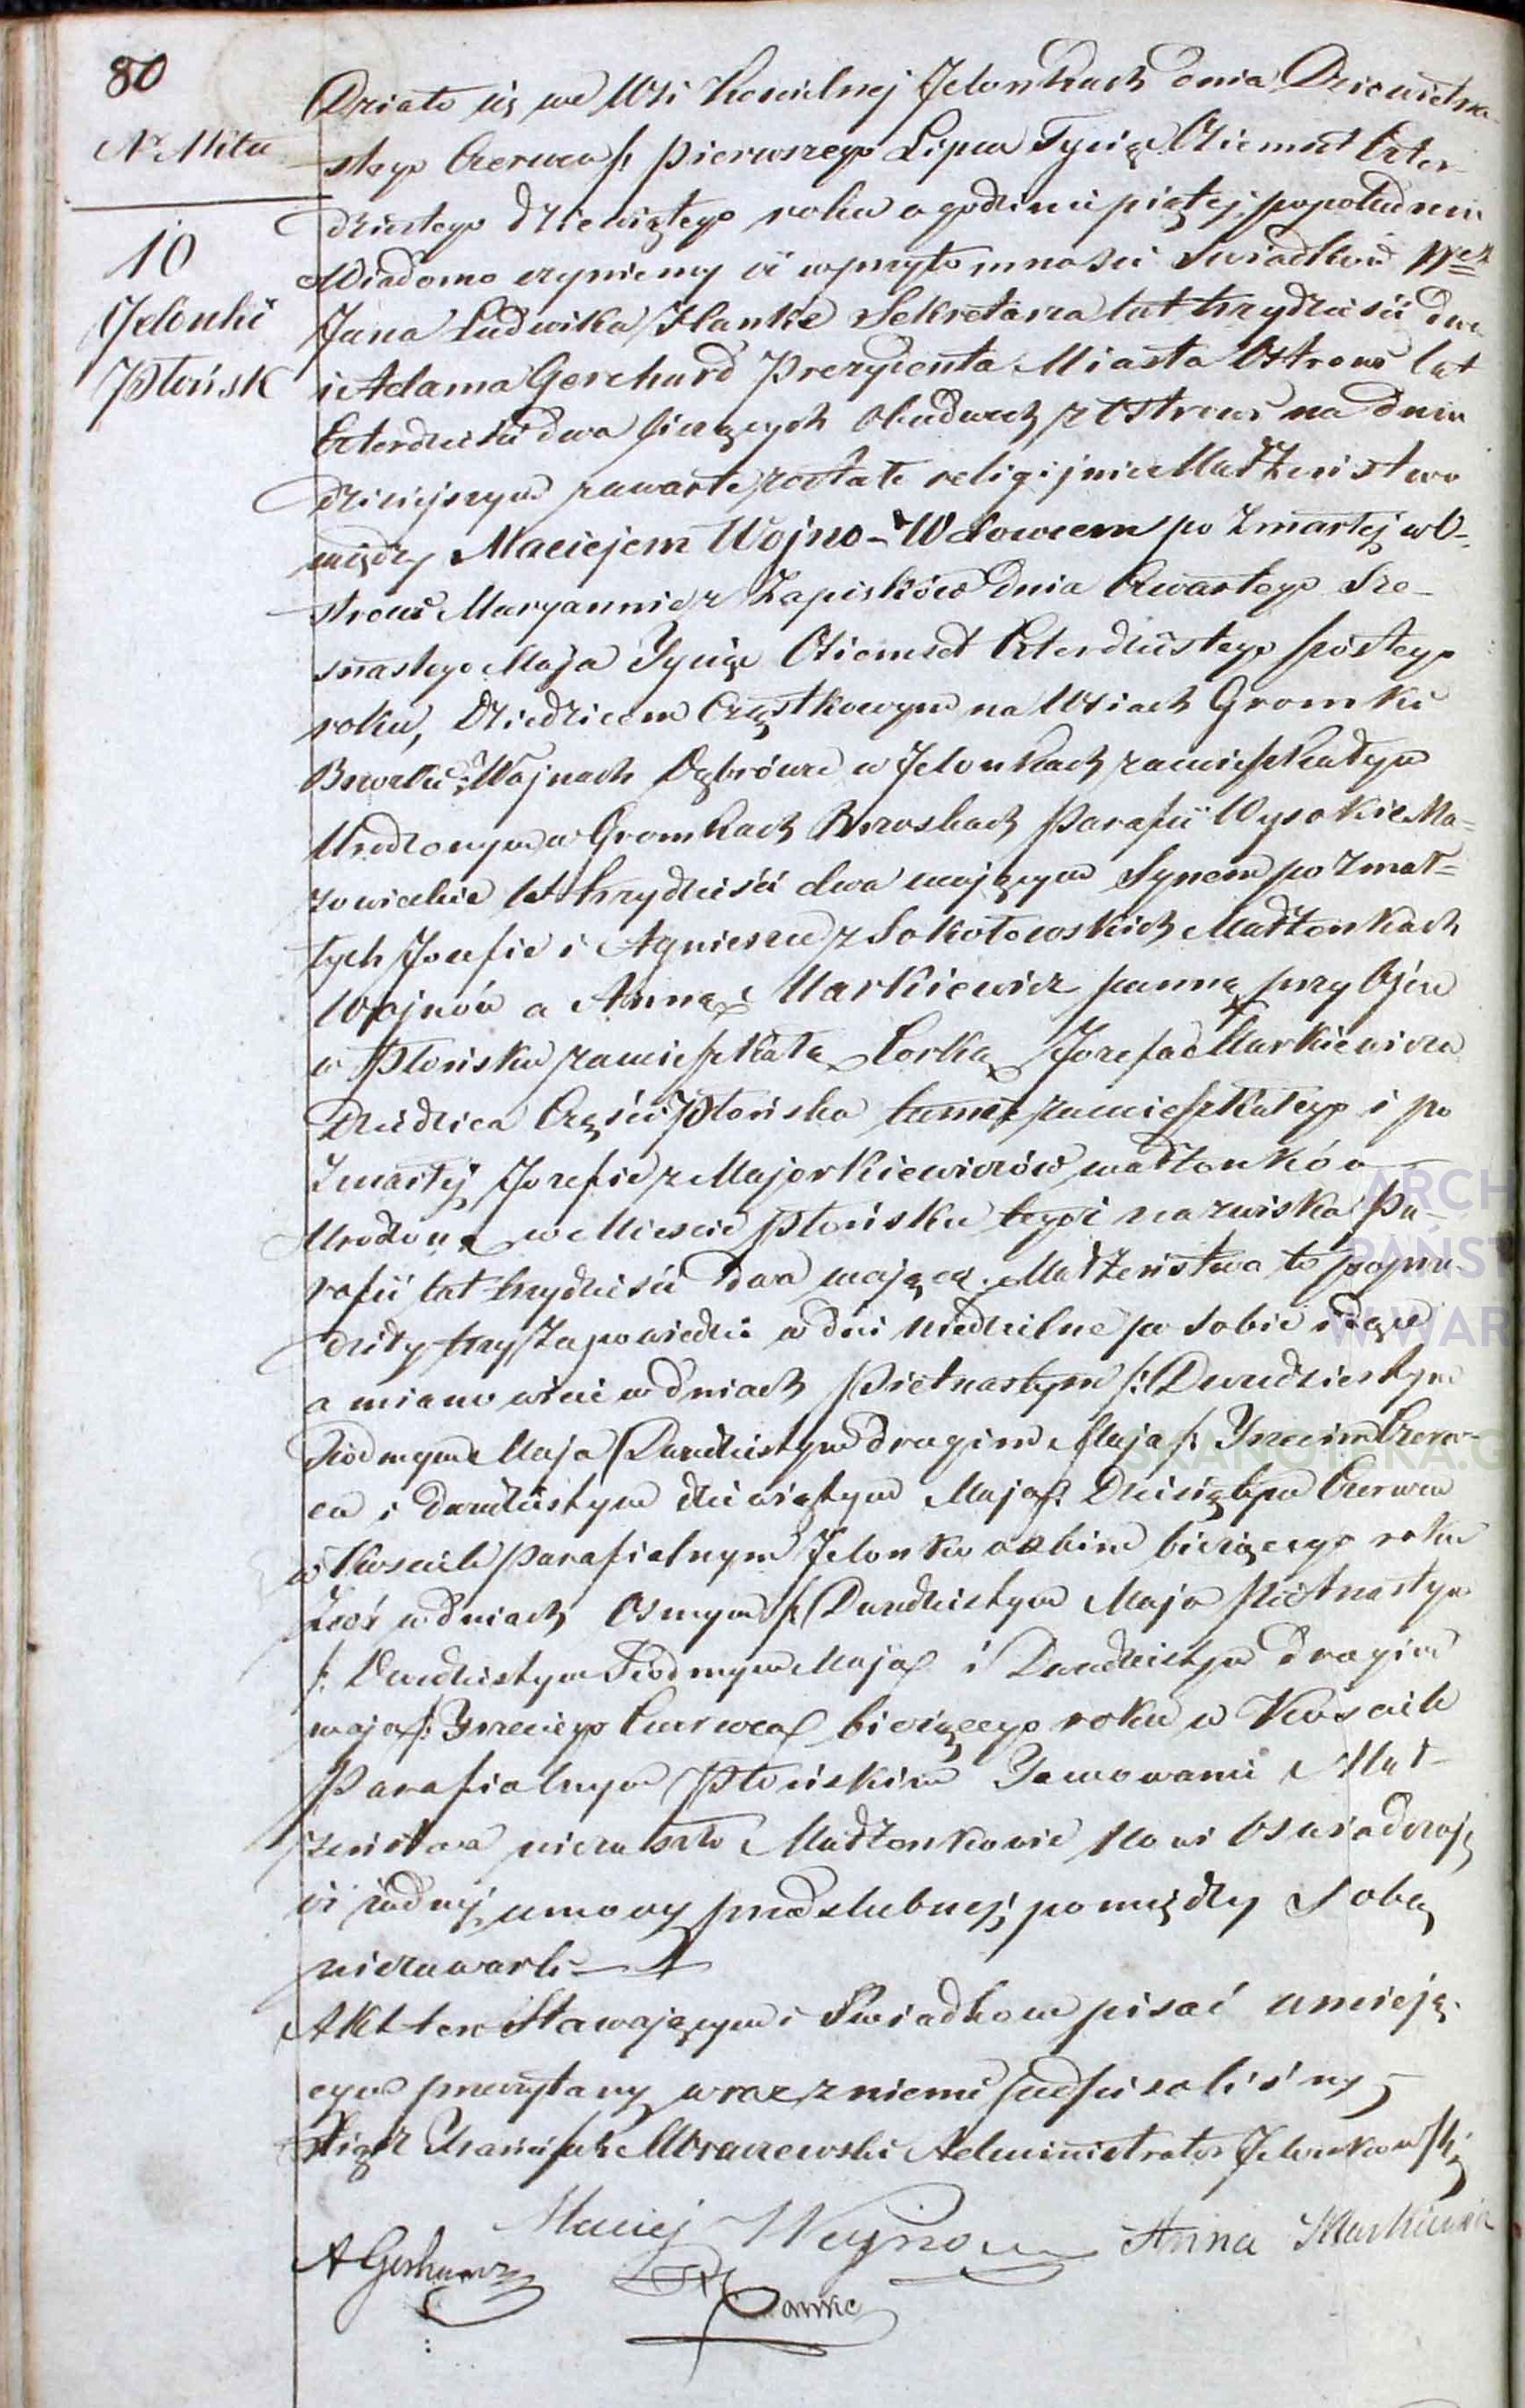 80
Nr Aktu
10
Jelonki
Płońsk
Działo się we Wsi Kościelnej Jelonkach dnia Dziewiętna-
stego Czerwca /: pierwszego Lipca Tysiąc Ośmset Czter-
dziestego dziewiątego roku o godzinie piątej popołudniu
Wiadomo czyniemy iż w przytomności Swiadków
Jana Ludwika Hanke Sekretarza lat trzydzieści dwa
i Adama Gerchard Prezydenta Miasta Ostrow lat
Czterdzieści dwa liczących Obudwóch z Ostrowi na dniu
dzisiejszym zawarte zostało religijnie Małżenstwo
między Maciejem Wojno - Wdowcem po Zmarłej w O-
strowi Maryannie z Zapisków dnia Czwartego Sze-
snastego Maja Tysiąc Ośmset Czterdziestego szóstego
roku, Dziedzicem Cząstkowym na Wsiach Gromki
Brzozki i Wojnach Dąbrówce w Jelonkach zamieszkałym
Urodzonym w Gromkach Brzoskach Parafii Wysokie Ma-
zowieckie lat trzydzieści dwa mającym Synem po Zmar-
łych Jozefie i Agnieszce z Sokołowskich Małżonkach
Wojnów a Anną Markiewicz panną przy Ojcu
w Płońsku zamieszkałą Corką Jozefa Markiewicza
Dziedzica Części Płońska tamże zamieszkałego i po
Zmarłej Jozefie z Majorkiewiczów małżonków
Urodzoną w Mieście Płońsku tegoż nazwiska Pa-
rafii lat trzydzieści dwa mającą. Małżeństwo to poprze-
dziły trzy Zapowiedzi w dni niedzielne po sobie idące
a mianowicie w dniach Piętnastym /: Dwudziestym
Siodmym Maja /Dwudziestym drugim Maja /: Trzecim Czerw-
ca i dwudziestym dziewiątym Maja /: Dziesiątym Czerwca
w Kosciele Parafialnym Jelonkowskim bieżącego roku
Zaś w dniach Osmym /: Dwudziestym Maja Piętnastym
/: Dwudziestym Siodmym Maja i Dwudziestym drugim
maja /: Trzeciego Czerwca bieżącego roku w Kosciele
Parafialnym Płońskim Tamowanie Mał-
żeństwa nie zaszło Małżonkowie Nowi Oswiadczają
iż żadnej umowy przedslubnej pomiędzy Sobą
niezawarli
Akt ten Stawającym i Swiadkom pisać umieją-
cym przeczytany wraz z niemi podpisaliśmy
Xiądz Franciszek Mroczewski Administrator Jelonkowski
Maciej Woyno Anna Markiewicz
A Gerhard Hanke